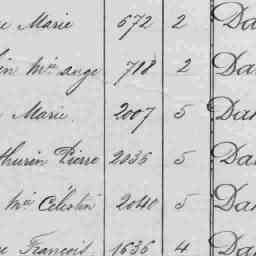 Marie 672 2
Mie ange 718 2
Marie 2007 5
thurin Pierre 2035 5
Mie Célestin 2040 5
François 1636 4